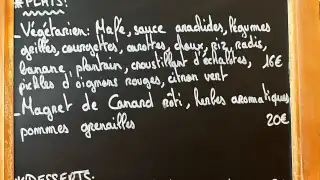 *PLATS:
_Végétarien: Mafé, sauce arachides, légumes
grillés, courgettes, carottes, choux, riz, radis,
banane plantain, croustillant d'échalotes, 16€
pickles d'oignons rouges, citron vert
_Magret de Canard rôti, herbes aromatiques
pommes grenailles 20€
*DESSERTS: